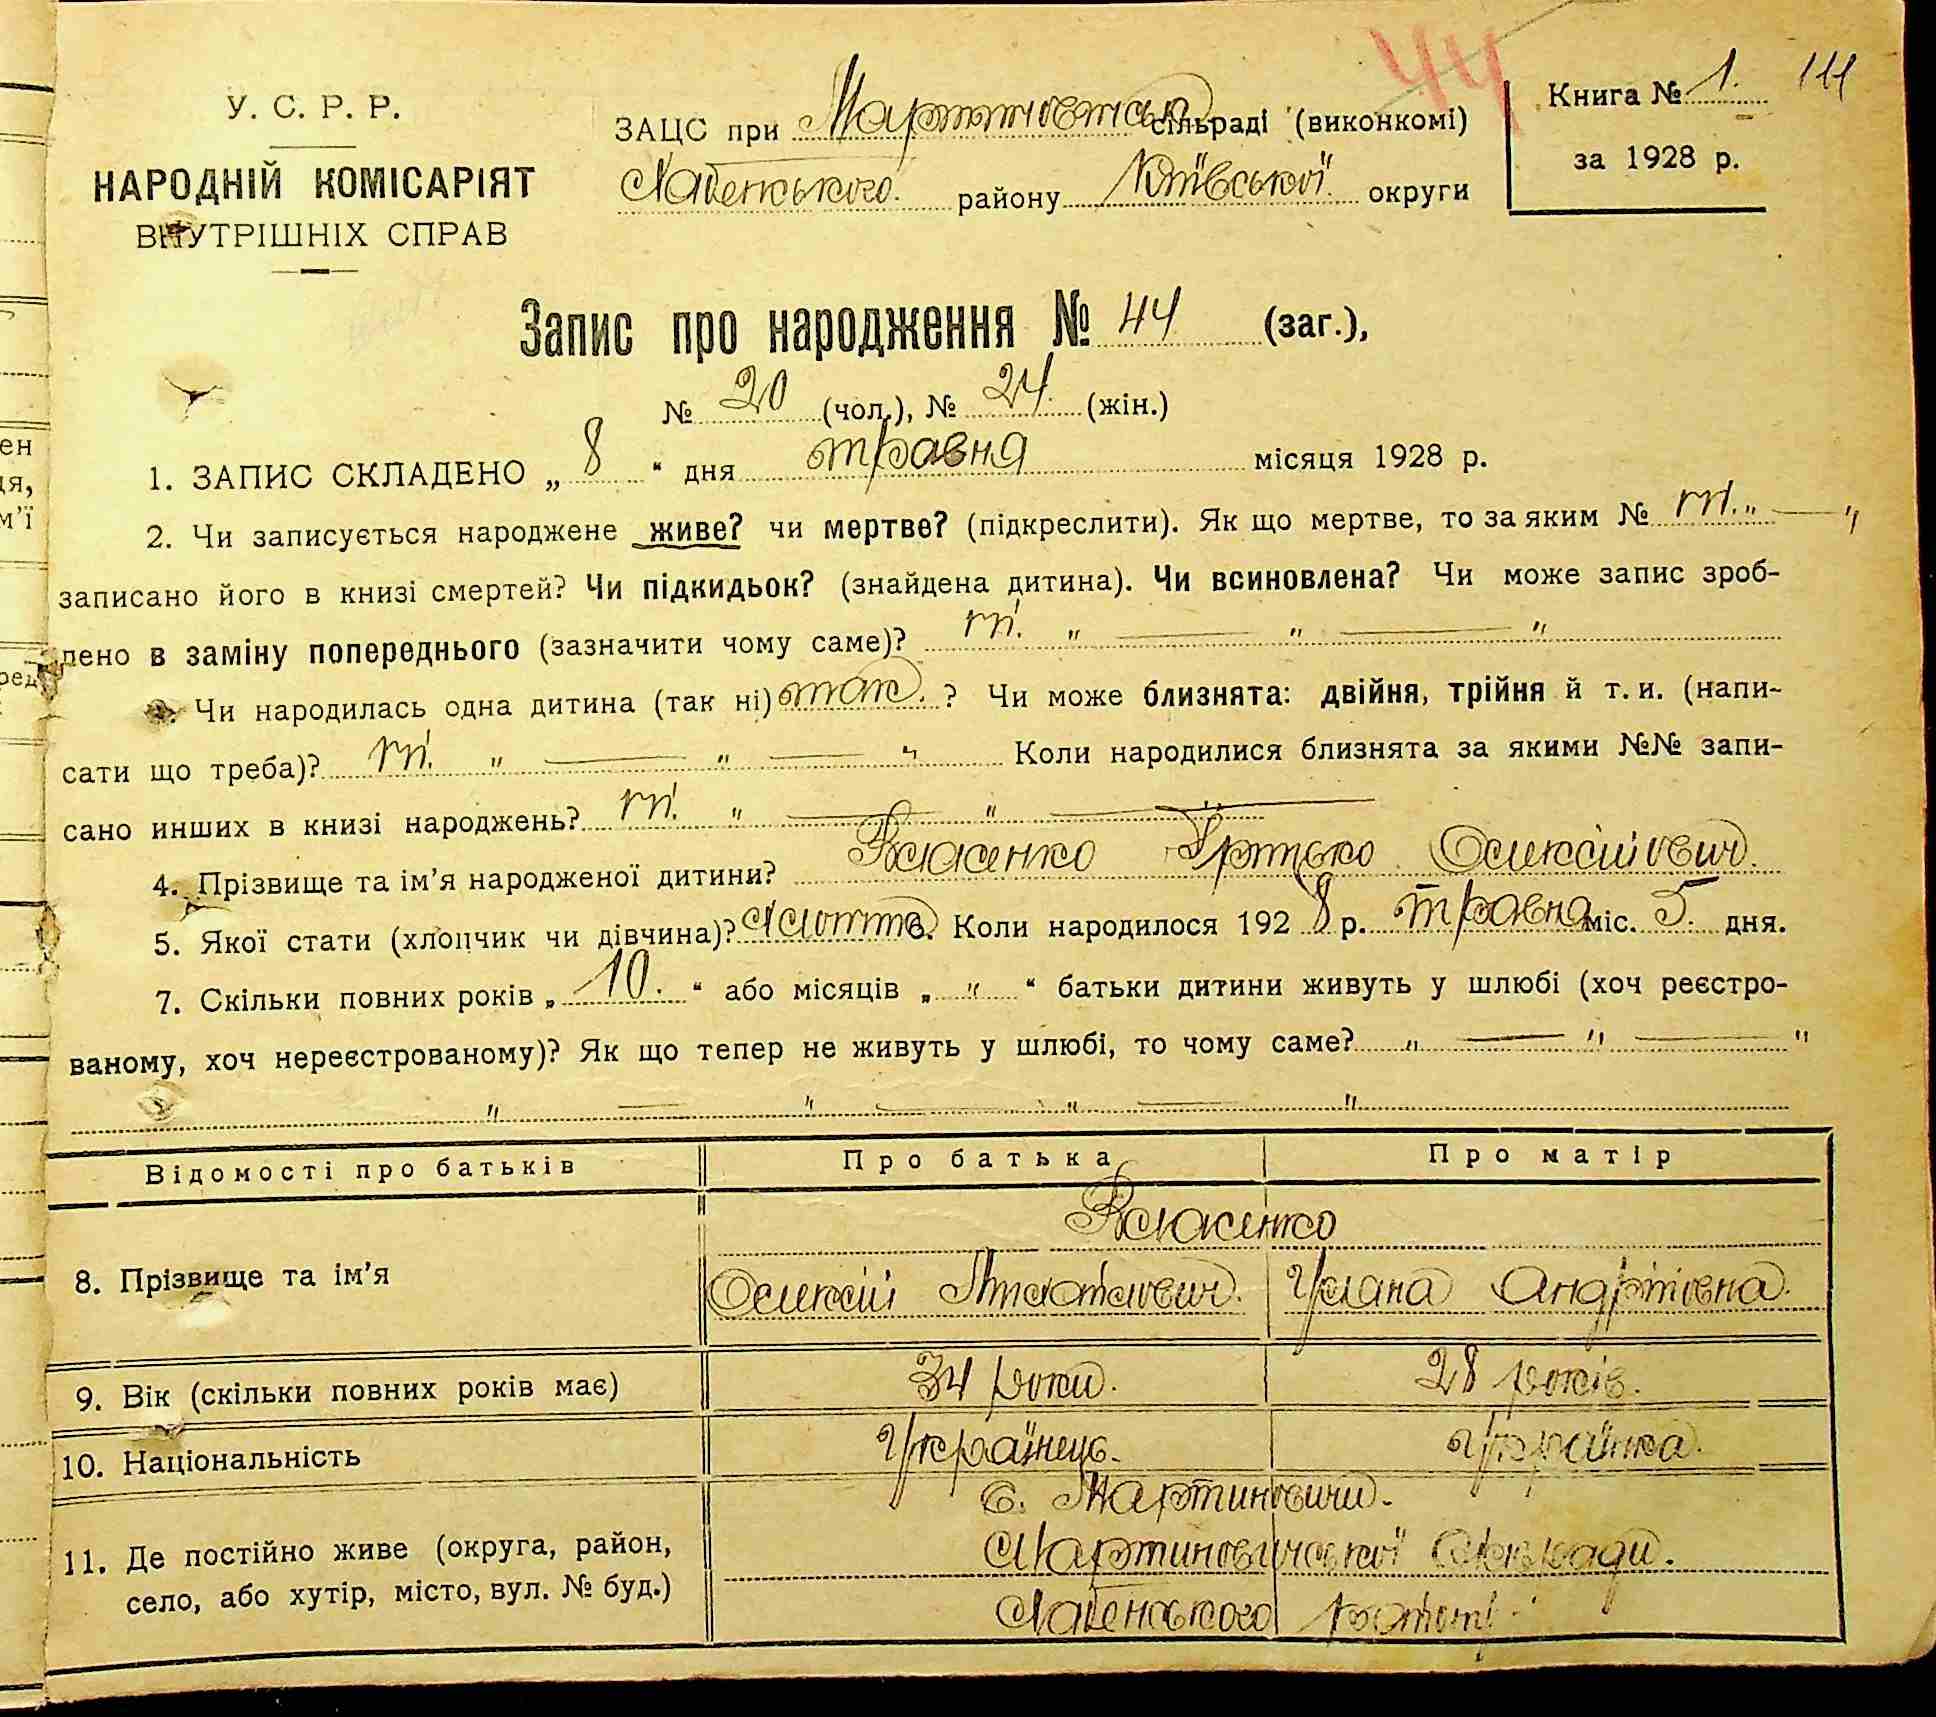 44
У. С. Р. Р.
НАРОДНІЙ КОМІСАРІЯТ
ВНУТРІШНІХ СПРАВ
ЗАЦС при Мартиновській сільраді (виконкомі)
Хабенського району Київської округи
Книга № 1. 111
за 1928 р.
Запис про народження № 44 (заг.),
№ 20 (чол.), № 24 (жін.)
1. ЗАПИС СКЛАДЕНО „ 8 “ дня травня місяця 1928 р.
2. Чи записується народжене живе? чи мертве? (підкреслити). Як що мертве, то за яким № ні. „ — „
записано його в книзі смертей? Чи підкидьок? (знайдена дитина). Чи всиновлена? Чи може запис зроб-
лено в заміну попереднього (зазначити чому саме)? ні. „ — „ — „
3. Чи народилась одна дитина (так ні) так. ? Чи може близнята: двійня, трійня й т. и. (напи-
сати що треба)? ні. „ — „ — „ Коли народилися близнята за якими №№ запи-
сано инших в книзі народжень? ні. „ — „ — „
4. Прізвище та ім’я народженої дитини? Власенко Грицько Олексійович.
5. Якої стати (хлопчик чи дівчина)? Коли народилося 1928 р. травня міс. 5. дня.
7. Скільки повних років „ 10. “ або місяців „ „ “ батьки дитини живуть у шлюбі (хоч реєстро-
ваному, хоч нереєстрованому)? Як що тепер не живуть у шлюбі, то чому саме? „ — „ — „
„ — „ — „ — „
Відомості про батьків Про батька Про матір
Власенко
8. Прізвище та ім’я Олексій Уляна Андріївна.
9. Вік (скільки повних років має) 34 роки. 28 років.
10. Національність Українець. Українка.
с. Мартиновичи.
11. Де постійно живе (округа, район, Мартиновичської сільради.
село, або хутір, місто, вул. № буд.) Хабенського району.
ен
ця,
м’ї
ред